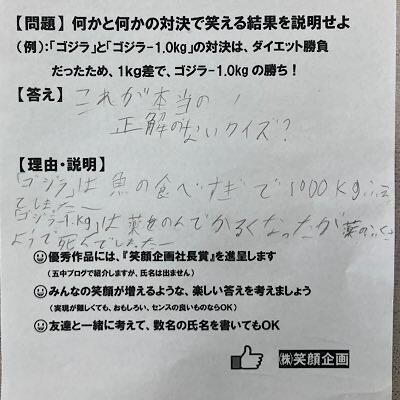 【問題】何かと何かの対決で笑える結果を説明せよ
(例):「ゴジラ」と「ゴジラ-1.0kg」の対決は、ダイエット勝負
だったため、1kg差で、ゴジラ-1.0kgの勝ち!
【答え】これが本当の
正解のないクイズ?
【理由・説明】
「ゴジラ」は魚の食べすぎで1000kgふえ
てしまったー
「ゴジラ-1.kg」は薬をのんでかるくなったが薬のふくさ
ようで死んでしまったー
優秀作品には、『笑顔企画社長賞』を進呈します
(五中ブログで紹介しますが、氏名は出ません)
みんなの笑顔が増えるような、楽しい答えを考えましょう
(実現が難しくても、おもしろい、センスの良いものならOK)
友達と一緒に考えて、数名の氏名を書いてもOK
㈱笑顔企画